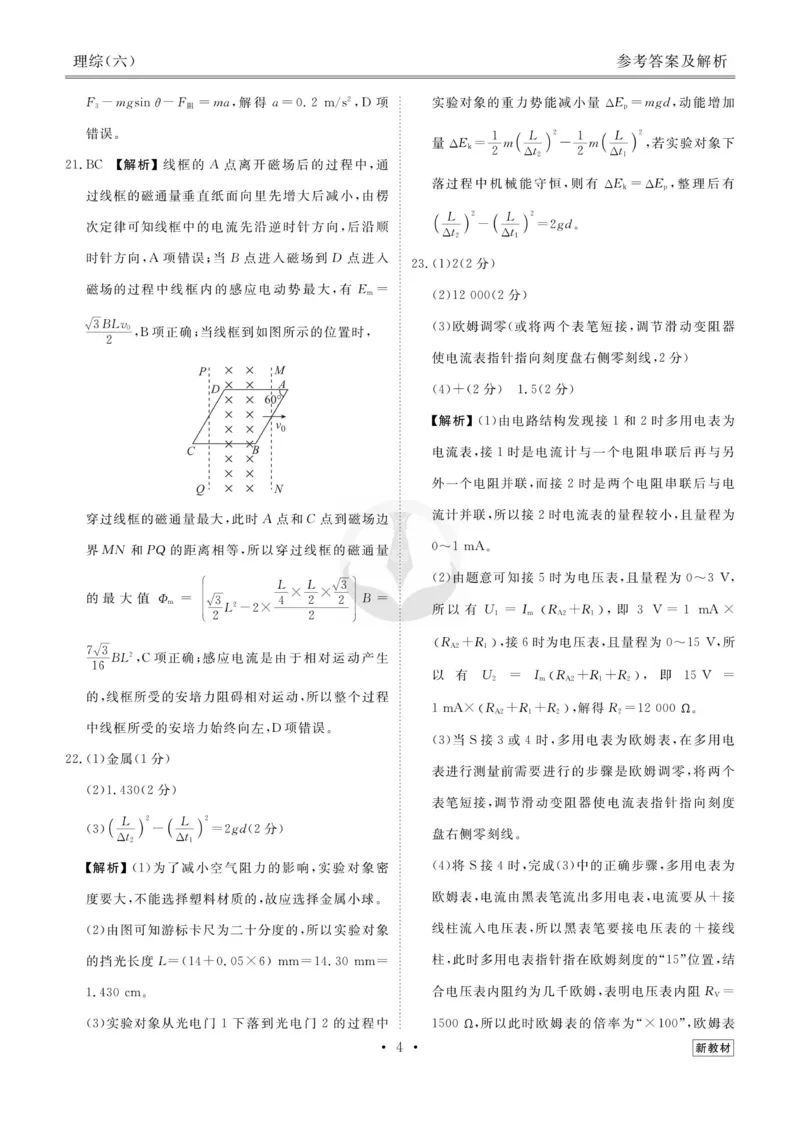 理综(六)
参考答案及解析
F₃－mgsin θ－F阻＝ma,解得 a＝0.2 m/s²,D 项
错误。
21.BC 【解析】线框的 A 点离开磁场后的过程中,通
过线框的磁通量垂直纸面向里先增大后减小,由楞
次定律可知线框中的电流先沿逆时针方向,后沿顺
时针方向,A 项错误;当 B 点进入磁场到 D 点进入
磁场的过程中线框内的感应电动势最大,有 Eₘ＝
√3BLv₀/2,B项正确;当线框到如图所示的位置时,
P × × M
D × × A
× × 60°
× ×
× × v₀
C × × B
× ×
× ×
Q × × N
穿过线框的磁通量最大,此时 A 点和 C 点到磁场边
界 MN 和 PQ 的距离相等,所以穿过线框的磁通量
的最大值 Φₘ ＝ (√3/2 L²－2×(L/4×L/2×√3/2)/2) B ＝
7√3/16 BL²,C项正确;感应电流是由于相对运动产生
的,线框所受的安培力阻碍相对运动,所以整个过程
中线框所受的安培力始终向左,D项错误。
22.(1)金属(1 分)
(2)1.430(2 分)
(3)(L/Δt₂)²－(L/Δt₁)²＝2gd(2 分)
【解析】(1)为了减小空气阻力的影响,实验对象密
度要大,不能选择塑料材质的,故应选择金属小球。
(2)由图可知游标卡尺为二十分度的,所以实验对象
的挡光长度 L＝(14＋0.05×6) mm＝14.30 mm＝
1.430 cm。
(3)实验对象从光电门 1 下落到光电门 2 的过程中
实验对象的重力势能减小量 ΔEₚ＝mgd,动能增加
量 ΔEₖ＝1/2 m(L/Δt₂)²－1/2 m(L/Δt₁)²,若实验对象下
落过程中机械能守恒,则有 ΔEₖ＝ΔEₚ,整理后有
(L/Δt₂)²－(L/Δt₁)²＝2gd。
23.(1)2(2 分)
(2)12 000(2 分)
(3)欧姆调零(或将两个表笔短接,调节滑动变阻器
使电流表指针指向刻度盘右侧零刻线,2 分)
(4)＋(2 分) 1.5(2 分)
【解析】(1)由电路结构发现接 1 和 2 时多用电表为
电流表,接 1 时是电流计与一个电阻串联后再与另
外一个电阻并联,而接 2 时是两个电阻串联后与电
流计并联,所以接 2 时电流表的量程较小,且量程为
0～1 mA。
(2)由题意可知接 5 时为电压表,且量程为 0～3 V,
所以有 U₁＝Iₘ(R_A2＋R₁),即 3 V＝1 mA×
(R_A2＋R₁),接 6 时为电压表,且量程为 0～15 V,所
以 有 U₂ ＝ Iₘ(R_A2＋R₁＋R₂), 即 15 V ＝
1 mA×(R_A2＋R₁＋R₂),解得 R₂＝12 000 Ω。
(3)当 S 接 3 或 4 时,多用电表为欧姆表,在多用电
表进行测量前需要进行的步骤是欧姆调零,将两个
表笔短接,调节滑动变阻器使电流表指针指向刻度
盘右侧零刻线。
(4)将 S 接 4 时,完成(3)中的正确步骤,多用电表为
欧姆表,电流由黑表笔流出多用电表,电流要从＋接
线柱流入电压表,所以黑表笔要接电压表的＋接线
柱,此时多用电表指针指在欧姆刻度的“15”位置,结
合电压表内阻约为几千欧姆,表明电压表内阻 R_V＝
1500 Ω,所以此时欧姆表的倍率为“×100”,欧姆表
• 4 •
新教材